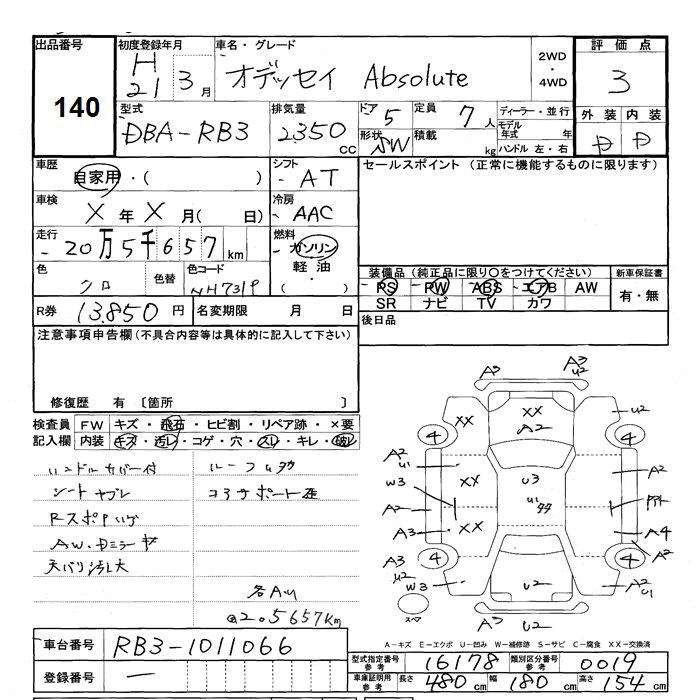 出品番号 初度登録年月 車名・グレード 評価点
140
H21 3月 オデッセイ Absolute 2WD・4WD 3
型式 排気量 ドア 5 定員 7人 ディーラー・並行 外装 内装
DBA-RB3 2350 cc 形状 SW 積載 kg モデル年式 年 ハンドル 左・右 D D
車歴 自家用・( ) シフト AT セールスポイント (正常に機能するものに限ります)
車検 X年X月( 日) 冷房 AAC
走行 20万5千657km 燃料 ガソリン・軽油・( )
色 クロ 色替 色コード NH731P
装備品 (純正品に限り○をつけてください) 新車保証書
PS PW ABS エアB AW 有・無
SR ナビ TV カワ
R券 13,850円 名変期限 月 日 後日品
注意事項申告欄(不具合内容等は具体的に記入して下さい)
修復歴 有 〔箇所
検査員記入欄 FW キズ・飛石・ヒビ割・リペア跡・×要
内装 キズ・汚レ・コゲ・穴・スレ・キレ・破レ
ハンドルカバー付
シートヤブレ
天バリ汚レ大
各AU
@205657km
A3 A3 U2
XX XX A2 U2
4 4
A2 U1 XX U3 A2
W3 U1
A2 XX A4
A3 A2
A3 U2 4 4
W3 U2 A2 U1
スペア A3 U2
A-キズ E-エクボ U-凹み W-補修跡 S-サビ C-腐食 XX-交換済
車台番号 RB3-1011066
登録番号 ―
型式指定番号参考 16178 類別区分番号参考 0019
車庫証明用参考 長さ 480cm 幅 180cm 高さ 154cm